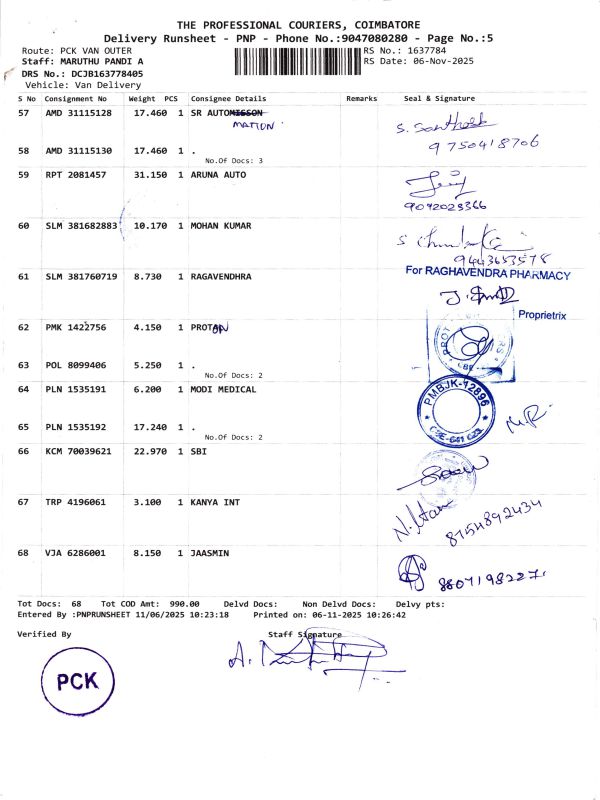 THE PROFESSIONAL COURIERS, COIMBATORE
Delivery Runsheet - PNP - Phone No.:9047080280 - Page No.:5
Route: PCK VAN OUTER RS No.: 1637784
Staff: MARUTHU PANDI A RS Date: 06-Nov-2025
DRS No.: DCJB163778405
Vehicle: Van Delivery
S No Consignment No Weight PCS Consignee Details Remarks Seal & Signature
57 AMD 31115128 17.460 1 SR AUTOMISSON
MATION
S. Santhosh
9750418706
58 AMD 31115130 17.460 1 .
No.Of Docs: 3
59 RPT 2081457 31.150 1 ARUNA AUTO
9092023366
60 SLM 381682883 10.170 1 MOHAN KUMAR
9443653578
61 SLM 381760719 8.730 1 RAGAVENDHRA
For RAGHAVENDRA PHARMACY
Proprietrix
62 PMK 1422756 4.150 1 PROTON
63 POL 8099406 5.250 1 .
No.Of Docs: 2
64 PLN 1535191 6.200 1 MODI MEDICAL
PMBJK-12896
M.R.
65 PLN 1535192 17.240 1 .
No.Of Docs: 2
66 KCM 70039621 22.970 1 SBI
67 TRP 4196061 3.100 1 KANYA INT
8754892434
68 VJA 6286001 8.150 1 JAASMIN
8807198227
Tot Docs: 68 Tot COD Amt: 990.00 Delvd Docs: Non Delvd Docs: Delvy pts:
Entered By :PNPRUNSHEET 11/06/2025 10:23:18 Printed on: 06-11-2025 10:26:42
Verified By Staff Signature
PCK